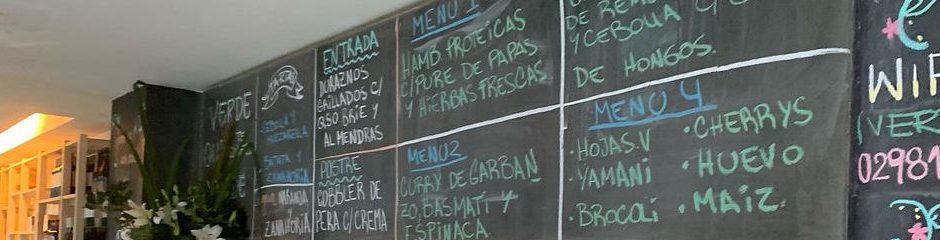 VERDE
CEBOLLA Y
BATATA Y
ZANAHORIA
NARANJA
ZANAHORIA
ENTRADA
DURAZNOS
GRILLADOS C/
QSO BRIE Y
ALMENDRAS
POSTRE
COBBLER DE
PERA C/CREMA
MENU 1
HAMB PROTEICAS
C/PURE DE PAPAS
Y HIERBAS FRESCAS
MENU 2
CURRY DE GARBAN
ZO, BASMATI Y
ESPINACA
Y CEBOLLA
DE HONGOS.
MENU 4
·HOJAS.V
·YAMANI
·BROCOLI
·CHERRYS
·HUEVO
·MAIZ.
WIF
VER
02981